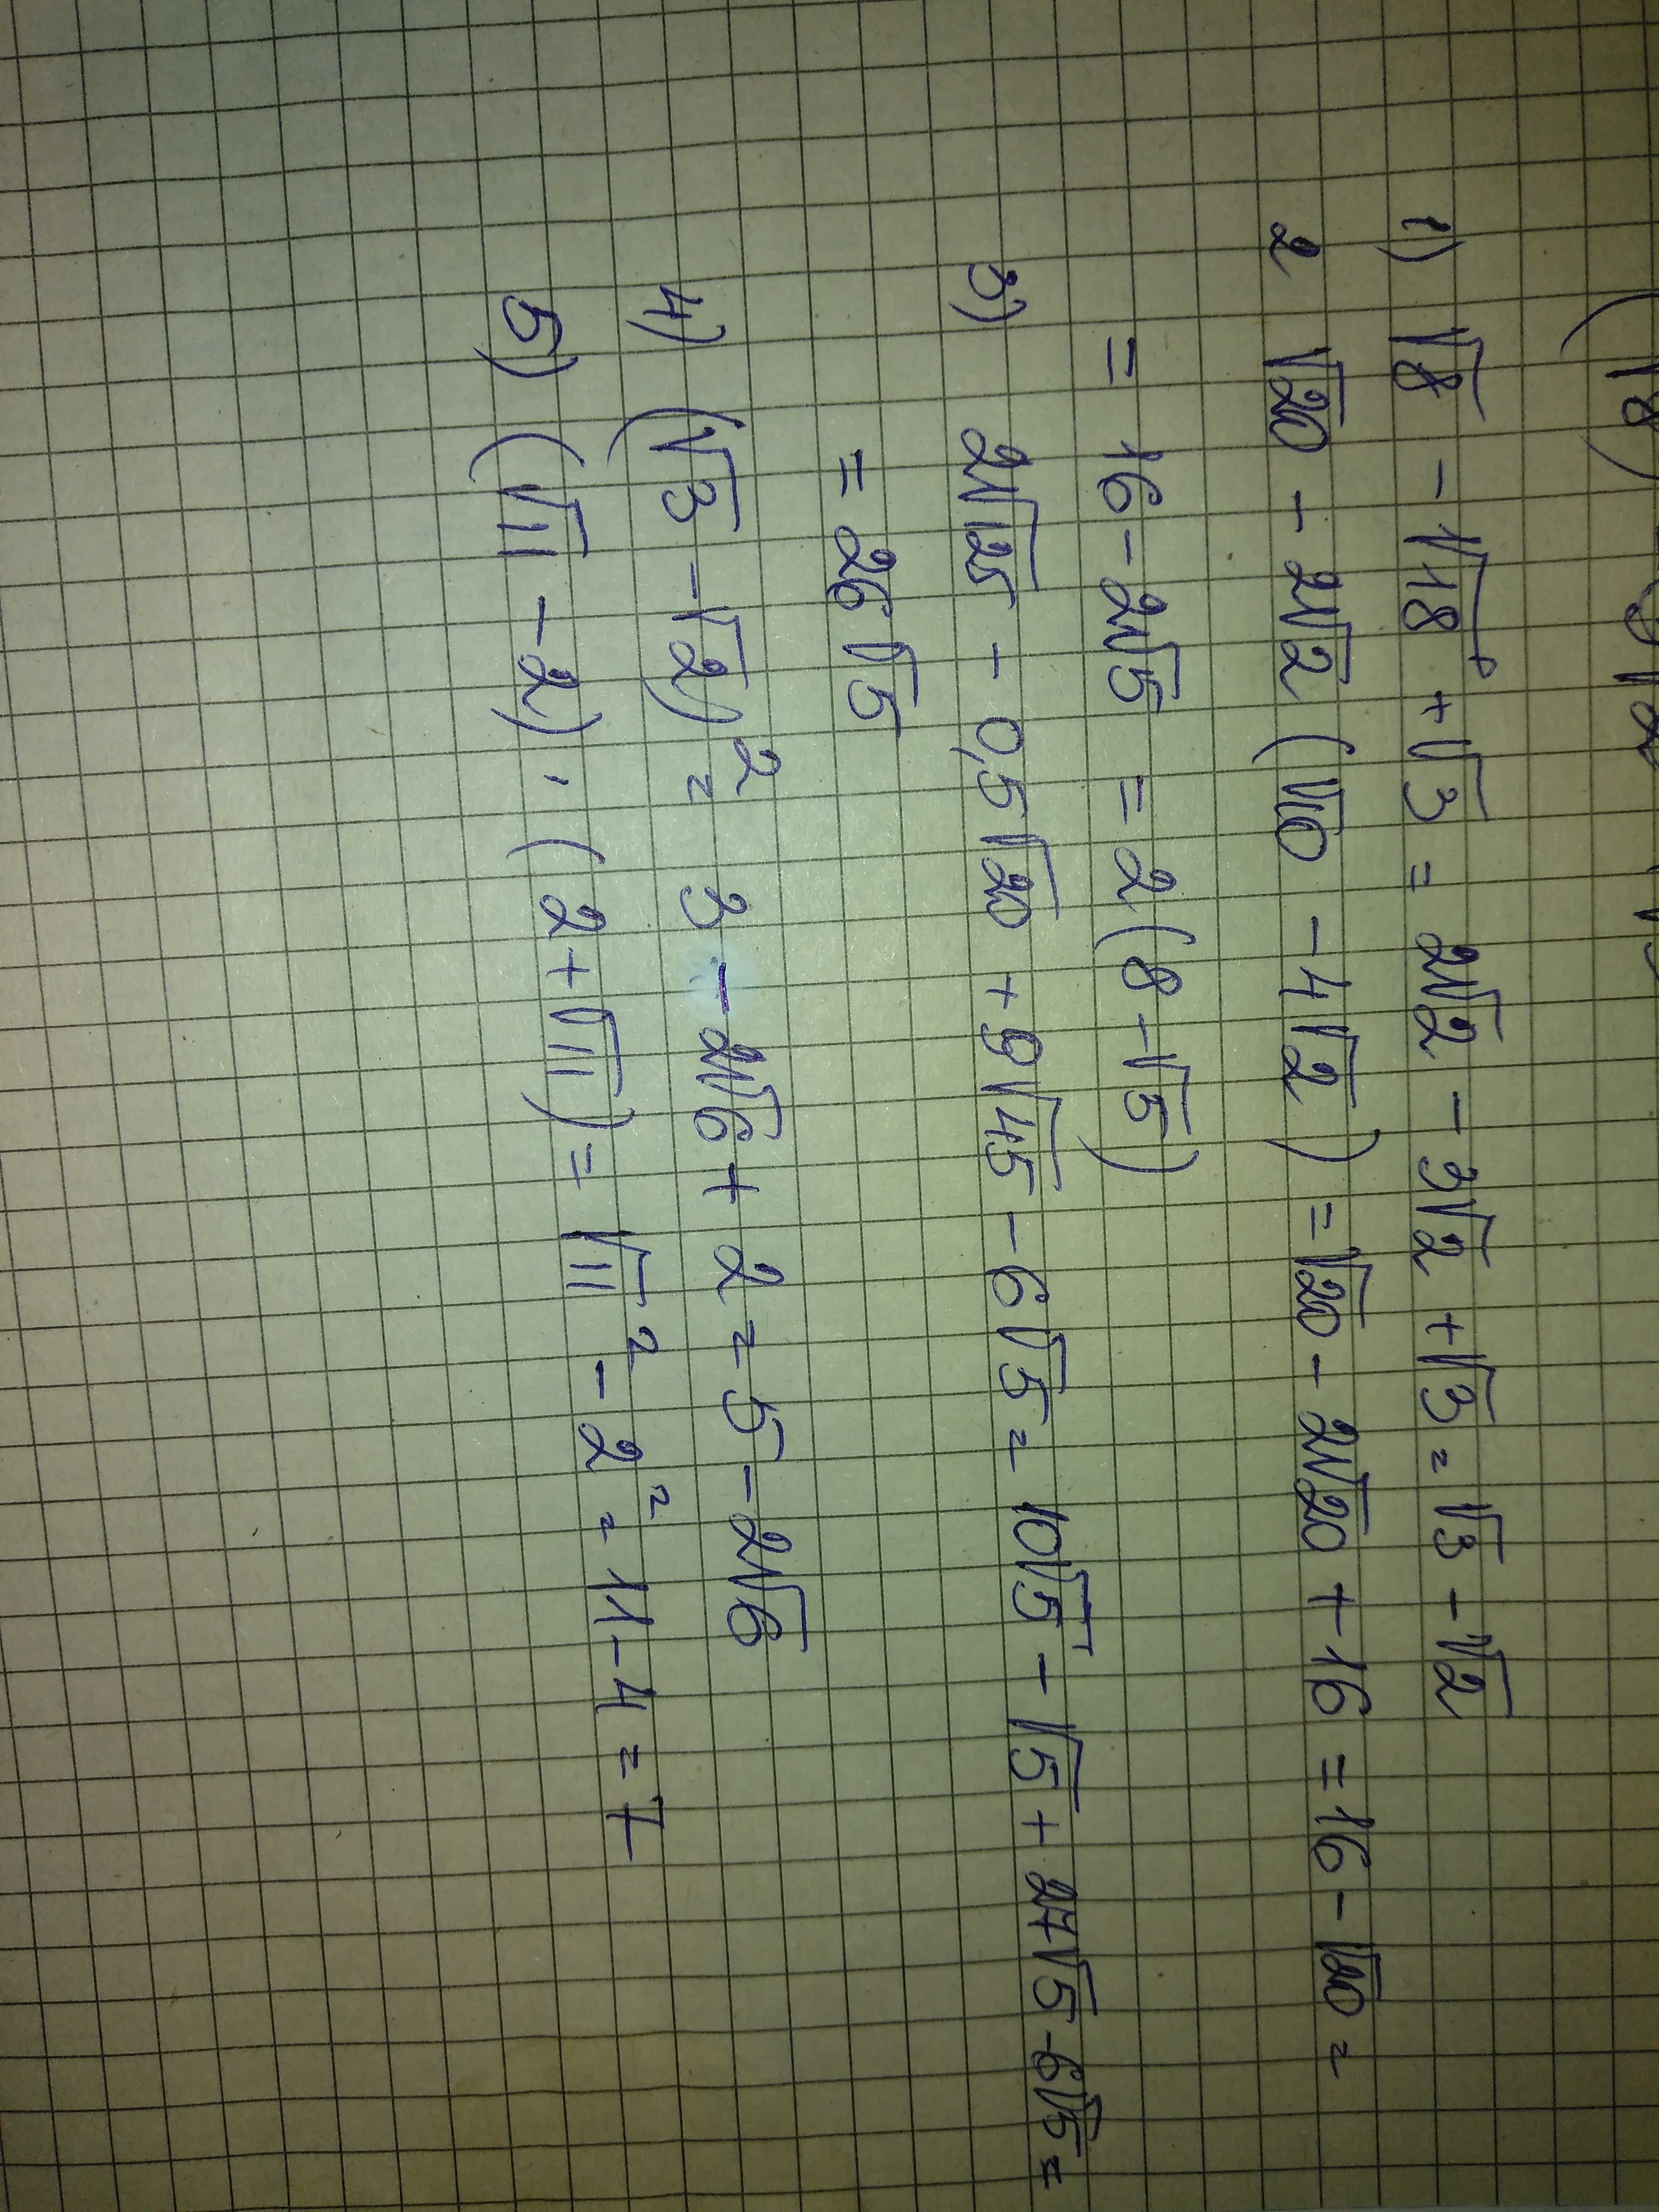 1) √8 - √18 + √3 = 2√2 - 3√2 + √3 = √3 - √2
2 √20 - 2√2 (√10 - 4√2) = √20 - 2√20 + 16 = 16 - √20 =
= 16 - 2√5 = 2(8 - √5)
3) 2√125 - 0,5√20 + 9√45 - 6√5 = 10√5 - √5 + 27√5 - 6√5 =
= 26√5
4) (√3 - √2)² = 3 - 2√6 + 2 = 5 - 2√6
5) (√11 - 2) · (2 + √11) = √11² - 2² = 11 - 4 = 7